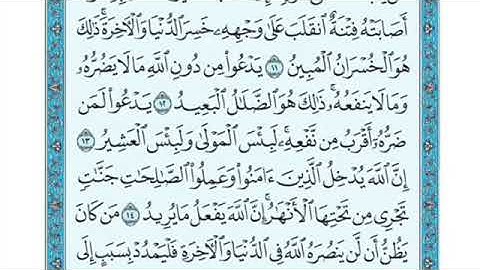 أَصَابَتْهُ فِتْنَةٌ ٱنقَلَبَ عَلَىٰ وَجْهِهِۦ خَسِرَ ٱلدُّنْيَا وَٱلْأَخِرَةَۚ ذَٰلِكَ
هُوَ ٱلْخُسْرَانُ ٱلْمُبِينُ ١١ يَدْعُوا۟ مِن دُونِ ٱللَّهِ مَا لَا يَضُرُّهُۥ
وَمَا لَا يَنفَعُهُۥۚ ذَٰلِكَ هُوَ ٱلضَّلَٰلُ ٱلْبَعِيدُ ١٢ يَدْعُوا۟ لَمَن
ضَرُّهُۥٓ أَقْرَبُ مِن نَّفْعِهِۦۚ لَبِئْسَ ٱلْمَوْلَىٰ وَلَبِئْسَ ٱلْعَشِيرُ ١٣
إِنَّ ٱللَّهَ يُدْخِلُ ٱلَّذِينَ ءَامَنُوا۟ وَعَمِلُوا۟ ٱلصَّٰلِحَٰتِ جَنَّٰتٍ
تَجْرِى مِن تَحْتِهَا ٱلْأَنْهَٰرُۚ إِنَّ ٱللَّهَ يَفْعَلُ مَا يُرِيدُ ١٤ مَن كَانَ
يَظُنُّ أَن لَّن يَنصُرَهُ ٱللَّهُ فِى ٱلدُّنْيَا وَٱلْأَخِرَةِ فَلْيَمْدُدْ بِسَبَبٍ إِلَى